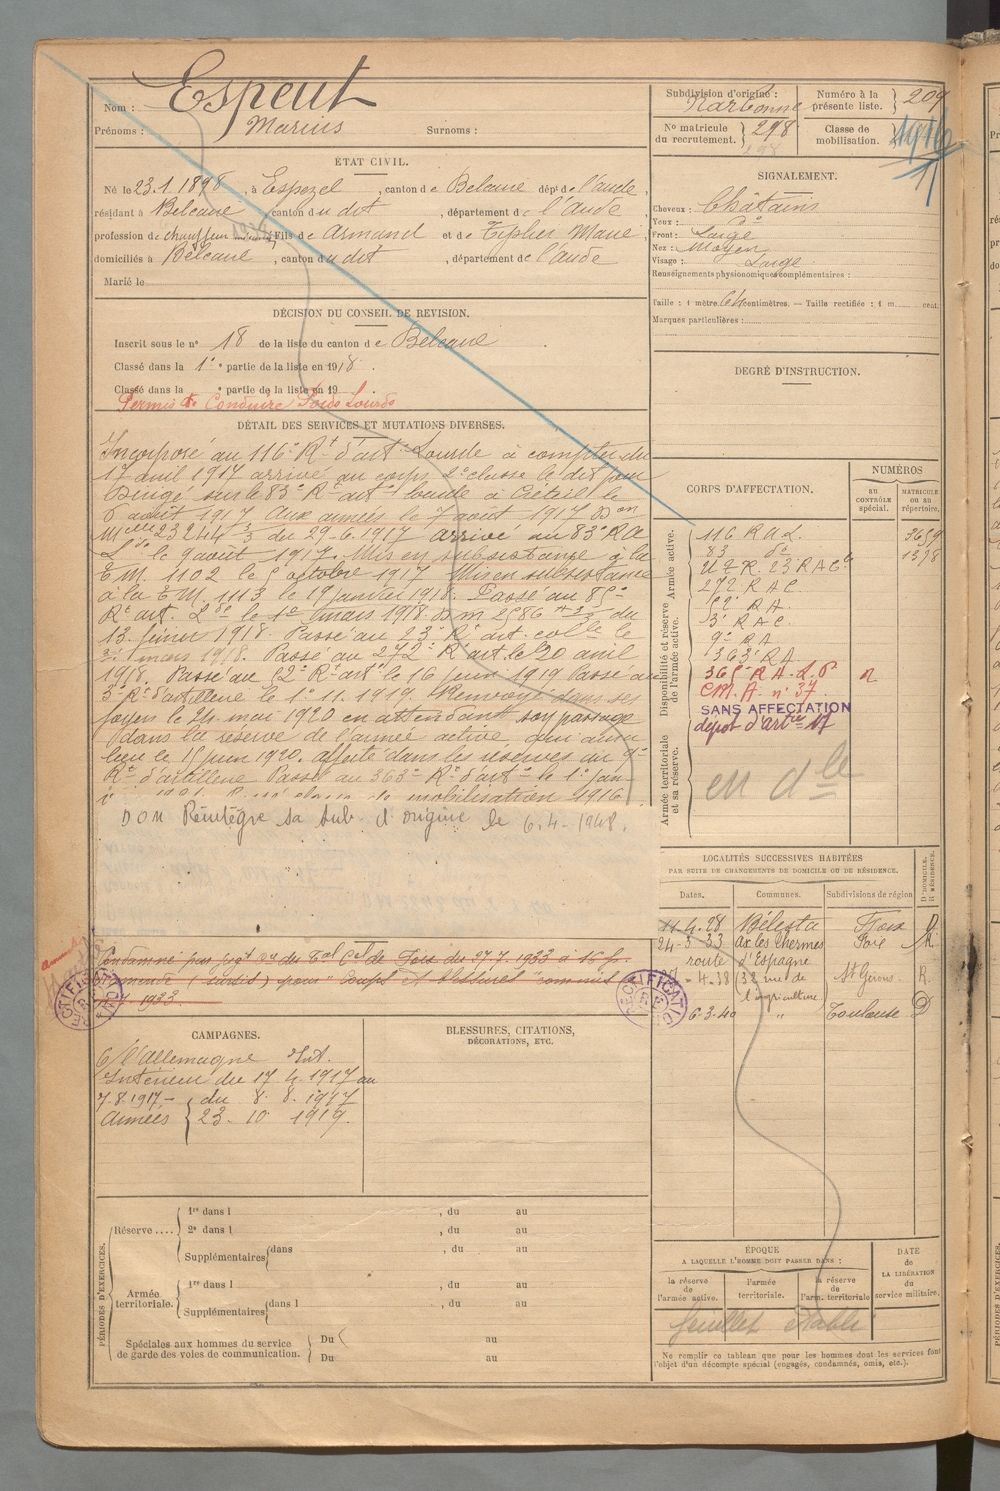 Nom : Espeut
Prénoms : Marius Surnoms :
ÉTAT CIVIL.
Né le 23.1.1898, à Espezel, canton de Belcaire dépt de l'aude,
résidant à Belcaire, canton du dit, département de l'Aude
profession de chauffeur Fils de Armand et de Teplier Marie,
domiciliés à Belcaire, canton du dit, département de l'aude
Marié le
DÉCISION DU CONSEIL DE REVISION.
Inscrit sous le n° 18 de la liste du canton de Belcaire
Classé dans la 1e partie de la liste en 1918.
Classé dans la e partie de la liste en 19
Permis de Conduire Poids Lourds
DÉTAIL DES SERVICES ET MUTATIONS DIVERSES.
Incorporé au 116e Rt d'art Lourde à compter du
17 avril 1917 arrivé au corps 2e classe le dit jour
Dirigé sur le 83e Rt art lourde à Créteil le
6 août 1917 Aux armées le 7 août 1917 Don
Melle 23244 3/3 du 29-6-1917 arrivé au 83e RA
Lde le 9 août 1917. Mis en subsistance à la
T M. 1102 le 5 octobre 1917 Mis en subsistance
à la T M. 1113 le 19 janvier 1918. Passé au 85e
Rt art. Lde le 1e mars 1918 D m 2586 du
13 février 1918. Passé au 23e Rt art. colle le
mars 1918. Passé au 272e Rt art. le 20 avril
1918. Passé au 52e Rt artie le 16 juin 1919 Passé au
3e Rt d'artillerie le 1e 11.1919. Renvoyé dans ses
foyers le 24 mai 1920 en attendant son passage
dans la réserve de l'armée active qui aura
lieu le 15 juin 1920. affecté dans les réserves au 9e
Rt d'artillerie Passé au 363e Rt d'art le 1e jan
mobilisation 1916
DOM Réintègre sa sub. d'origine le 6.4-1948.
Condamné par jugt du Tal Cel de Foix du 27.7.1933 à 15 f.
amende (sursis) pour "coups et blessures" commis
1933
RECTIFICATIF
RECTIFICATIF
CAMPAGNES.
C/ l'Allemagne Int.
Intérieur du 17 4.1917 au
7.8.1917 –
Armées { du 8 8. 1917
23. 10 1919.
BLESSURES, CITATIONS,
DÉCORATIONS, ETC.
PÉRIODES D'EXERCICES.
Réserve .... { 1re dans l , du au
2e dans l , du au
Supplémentaires { dans , du au
Armée territoriale. { 1re dans l , du au
Supplémentaires { dans l , du au
Spéciales aux hommes du service
de garde des voies de communication. { Du au
Du au
Subdivision d'origine : Narbonne
Numéro à la présente liste. } 209
No matricule du recrutement. } 298
298
Classe de mobilisation. } 1916
SIGNALEMENT.
Cheveux : Châtains
Yeux : do
Front : Large
Nez : Moyen
Visage : Large
Renseignements physionomiques complémentaires :
Taille : 1 mètre 64 centimètres. — Taille rectifiée : 1 m. cent.
Marques particulières :
DEGRÉ D'INSTRUCTION.
CORPS D'AFFECTATION.
NUMÉROS
AU CONTRÔLE spécial.
MATRICULE ou au répertoire.
Armée active.
Disponibilité et réserve de l'armée active.
Armée territoriale et sa réserve.
116 R A L. 3659
83 do 1378
23 R A C
272 R A C.
52e R A.
3e R A C.
9e R A
363e R A
365e R A. L. P n
C.M. A. n° 37
SANS AFFECTATION
dépôt d'artrie 17
en dle
LOCALITÉS SUCCESSIVES HABITÉES
PAR SUITE DE CHANGEMENTS DE DOMICILE OU DE RÉSIDENCE.
Dates. Communes. Subdivisions de région D DOMICILE. R RÉSIDENCE.
11.4.28 Bélesta Foix D
24-3 33 ax les thermes Foix R
route d'Espagne
4-38 (32 rue de St Girons R
l'agriculture)
6-3.40 " Toulouse D
ÉPOQUE
A LAQUELLE L'HOMME DOIT PASSER DANS :
la réserve de l'armée active.
l'armée territoriale.
la réserve de l'arm. territoriale
DATE DE LA LIBÉRATION du service militaire.
feuillet établi
Ne remplir ce tableau que pour les hommes dont les services font
l'objet d'un décompte spécial (engagés, condamnés, omis, etc.).